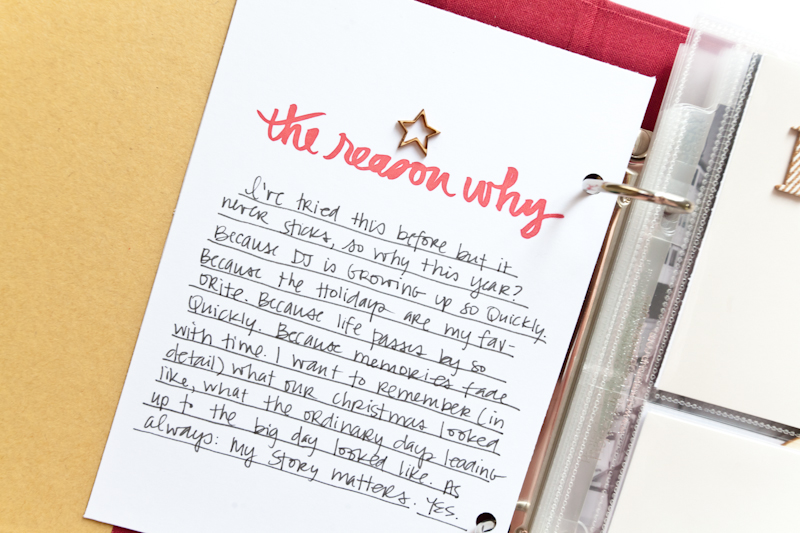 the reason why
I've tried this before but it
never sticks, so why this year?
Because DJ is growing up so quickly.
Because the holidays are my fav-
orite. Because life passes by so
quickly. Because memories fade
with time. I want to remember (in
detail) what our christmas looked
like, what the ordinary days leading
up to the big day looked like. As
always: my story matters. Yes.